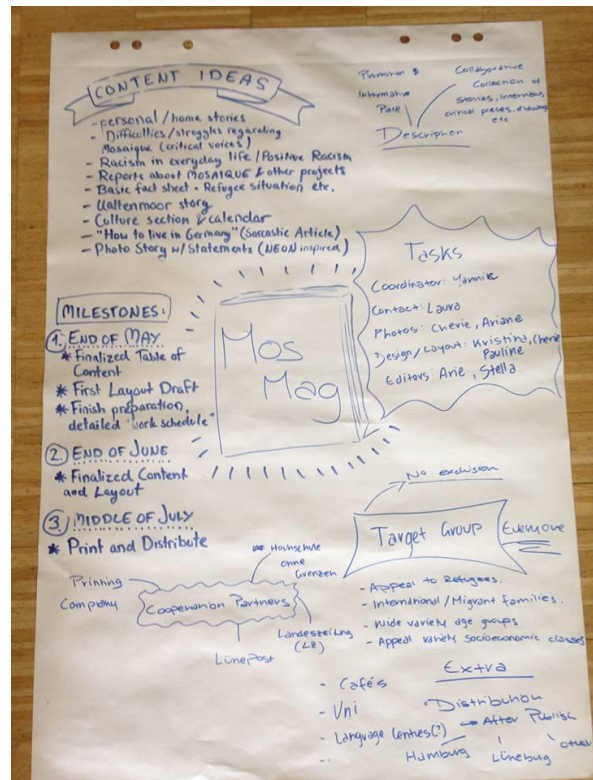 CONTENT IDEAS
- personal / home stories
- Difficulties / struggles regarding
Mosaique (critical voices)
- Racism in everyday life / Positive Racism
- Reports about MOSAIQUE & other projects
- Basic fact sheet - Refugee situation etc.
- Uallenmoor story
- Culture section & calendar
- "How to live in Germany" (Sarcastic Article)
- Photo Story w/ Statements (NEON inspired)
Promotion &
Informative
Piece
Collaborative
Collection of
stories, interviews,
critical pieces, drawing
etc
Description
Tasks
Coordinator: Yannik
Contact: Laura
Photos: Cherie, Ariane
Design/Layout: Kristina, Cherie
Pauline
Editors: Arie, Stella
Mos
Mag
MILESTONES:
1. END OF MAY
* Finalized Table of
Content
* First Layout Draft
* Finish preparation,
detailed "work schedule"
2. END OF JUNE
* Finalized Content
and Layout
3. MIDDLE OF JULY
* Print and Distribute
No exclusion
Target Group
Everyone
- Appeal to Refugees.
- International / Migrant families.
- Wide variety age groups
- Appeal variety socioeconomic classes
Hochschule
ohne
Grenzen
Printing
Company
Cooperation Partners
Landeszeitung
(LZ)
LünePost
Extra
- Cafés
- Uni
- Language Centres(?)
Distribution
After Publish
Hamburg
Lüneburg
other